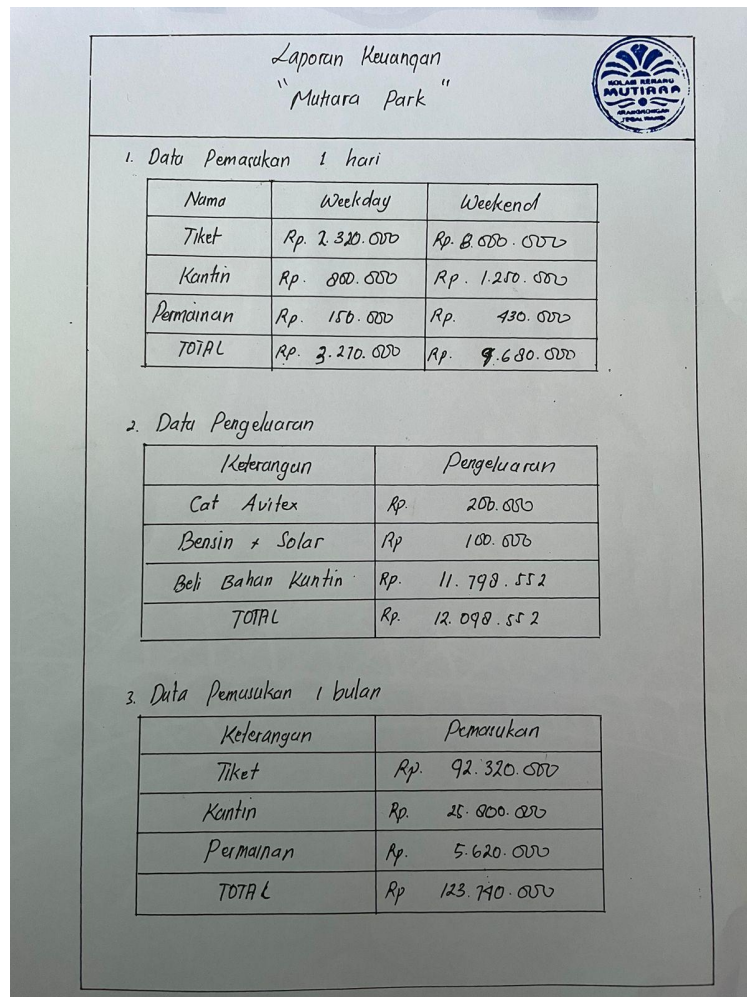 Laporan Keuangan
" Mutiara Park "
KOLAM RENANG
MUTIARA
1. Data Pemasukan 1 hari
Nama Weekday Weekend
Tiket Rp. 2.320.000 Rp. 8.000.000
Kantin Rp. 800.000 Rp. 1.250.000
Permainan Rp. 150.000 Rp. 430.000
TOTAL Rp. 3.270.000 Rp. 9.680.000
2. Data Pengeluaran
Keterangan Pengeluaran
Cat Avitex Rp. 200.000
Bensin + Solar Rp 100.000
Beli Bahan Kantin Rp. 11.798.552
TOTAL Rp. 12.098.552
3. Data Pemasukan 1 bulan
Keterangan Pemasukan
Tiket Rp. 92.320.000
Kantin Rp. 25.800.000
Permainan Rp. 5.620.000
TOTAL Rp 123.740.000